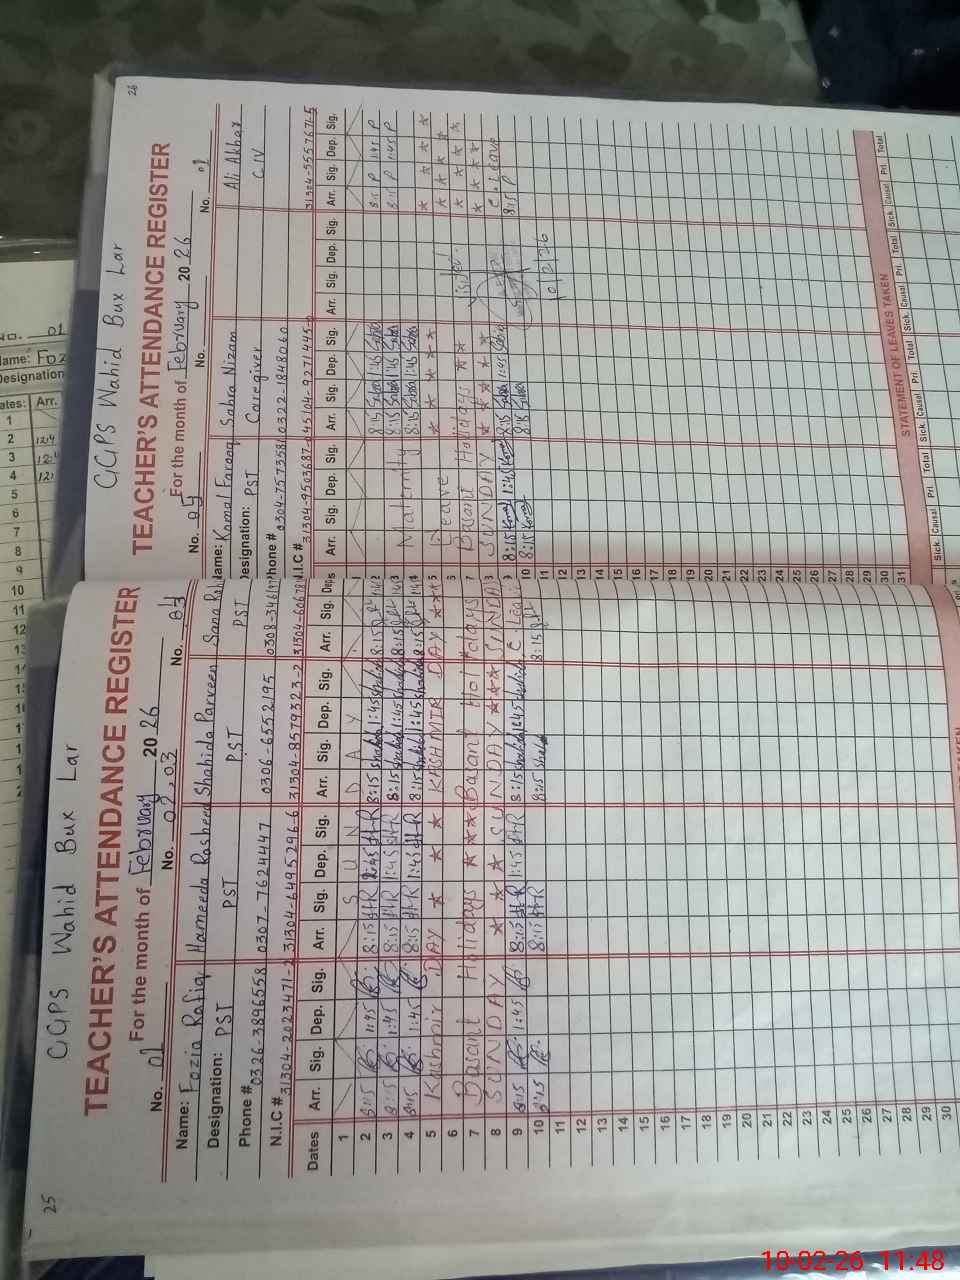 25
GGPS Wahid Bux Lar
TEACHER'S ATTENDANCE REGISTER
For the month of February 2026
No. 01 No. 02, 03 No.
Name: Fozia Rafiq Hameeda Rasheed Shahida Parveen Sana
Designation: PST PST PST PST
Phone # 0326-3896558 0307-7624447 0306-6552195
N.I.C # 31304-2023471-2 31304-6495296-6 31304-8579323-2
Dates Arr. Sig. Dep. Sig. Arr. Sig. Dep. Sig. Arr. Sig. Dep. Sig. Arr. Sig. Dep.
1 S U N D A Y
2 8:15 1:45 8:15 H-R 1:45 H-R 8:15 1:45 8:15
3 8:15 1:45 8:15 H-R 1:45 H-R 8:15 1:45 8:15
4 8:15 1:45 8:15 H-R 1:45 H-R 8:15 1:45 8:15
5 Kashmir DAY * * * KASHMIR DAY * * *
6
7 Basant Holidays * * * Basant Holidays
8 SUNDAY * * * SUNDAY * * * SUNDAY
9 8:15 1:45 8:15 H-R 1:45 H-R 8:15 1:45 C. Leave
10 8:15 8:15 H-R 8:15 8:15
11
12
13
14
15
16
17
18
19
20
21
22
23
24
25
26
27
28
29
30
26
GGPS Wahid Bux Lar
TEACHER'S ATTENDANCE REGISTER
For the month of February 2026
No. 05 No. No. 01
Name: Komal Farooq Sabra Nizam Ali Akbar
Designation: PST Caregiver C IV
Phone # 0304-7573581 0322-1848060
N.I.C # 31304-9503687-4 45104-9271445-0 31304-5557671-5
Arr. Sig. Dep. Sig. Arr. Sig. Dep. Sig. Arr. Sig. Dep. Sig. Arr. Sig. Dep. Sig.
1
2 8:15 Sabra 1:45 Sabra 8:15 P 1:45 P
3 Maternity 8:15 Sabra 1:45 Sabra 8:15 P 1:45 P
4 8:15 Sabra 1:45 Sabra
5 Leave * * * * * * * *
6
7 Basant Holidays * * * * * *
8 SUNDAY * * * *
9 8:15 Komal 1:45 Komal 8:15 Sabra 1:45 Sabra C. Leave
10 8:15 Komal 8:15 Sabra 8:15 P
10/2/26
11
12
13
14
15
16
17
18
19
20
21
22
23
24
25
26
27
28
29
30
31
STATEMENT OF LEAVES TAKEN
Sick. Causal Pri. Total Sick. Causal Pri. Total Sick. Causal Pri. Total Sick. Causal Pri. Total
No. 01
Name: Foz
Designation
Dates: Arr.
1
2
3
4
5
6
7
8
9
10
11
12
10-02-26 11:48